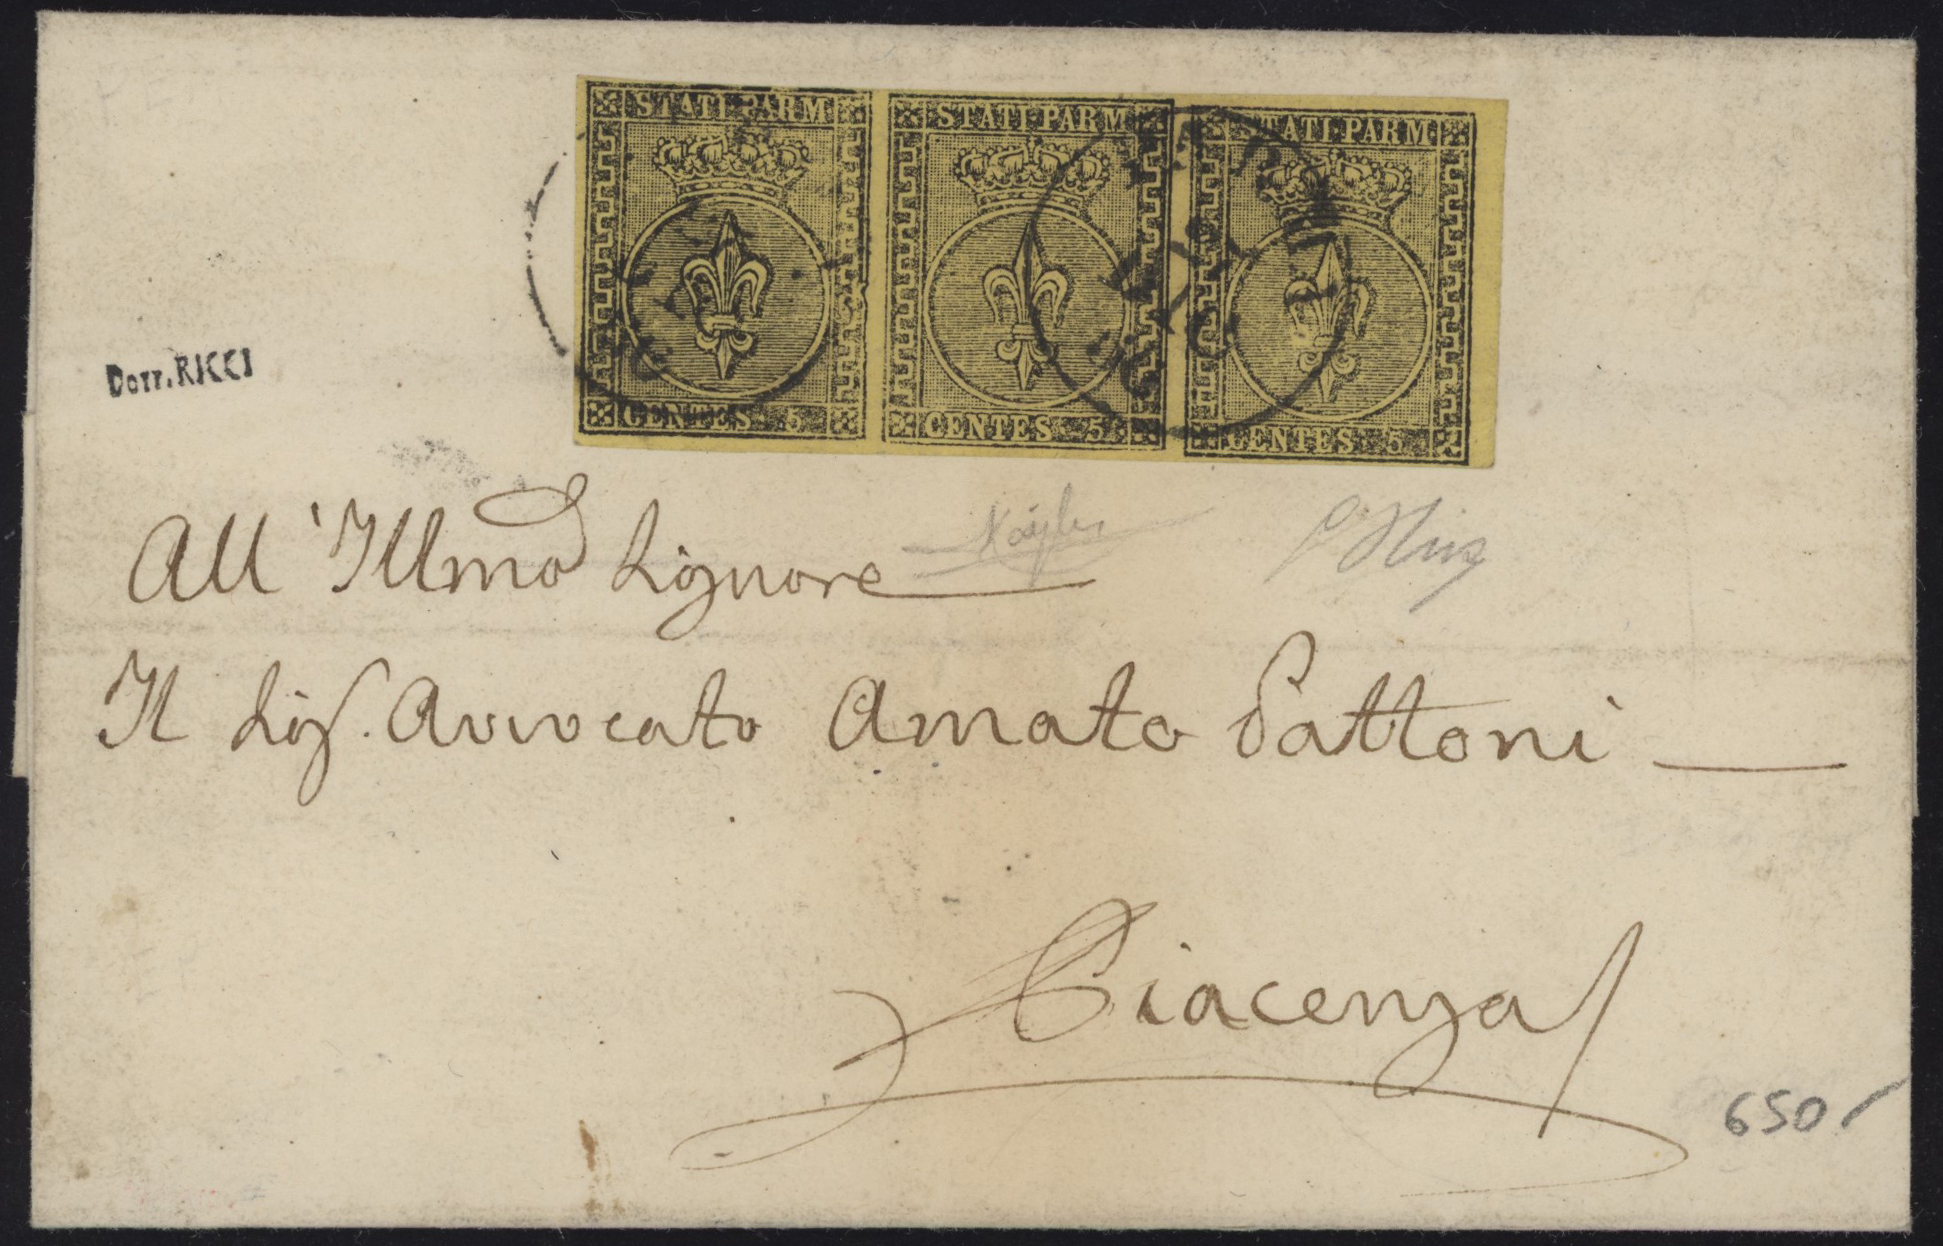 STATI PARM STATI PARM STATI PARM
CENTES 5 CENTES 5 CENTES 5
Dott. RICCI
All'Illmo Signore
Il Sig. Avvocato Amato Pattoni
Piacenza
650